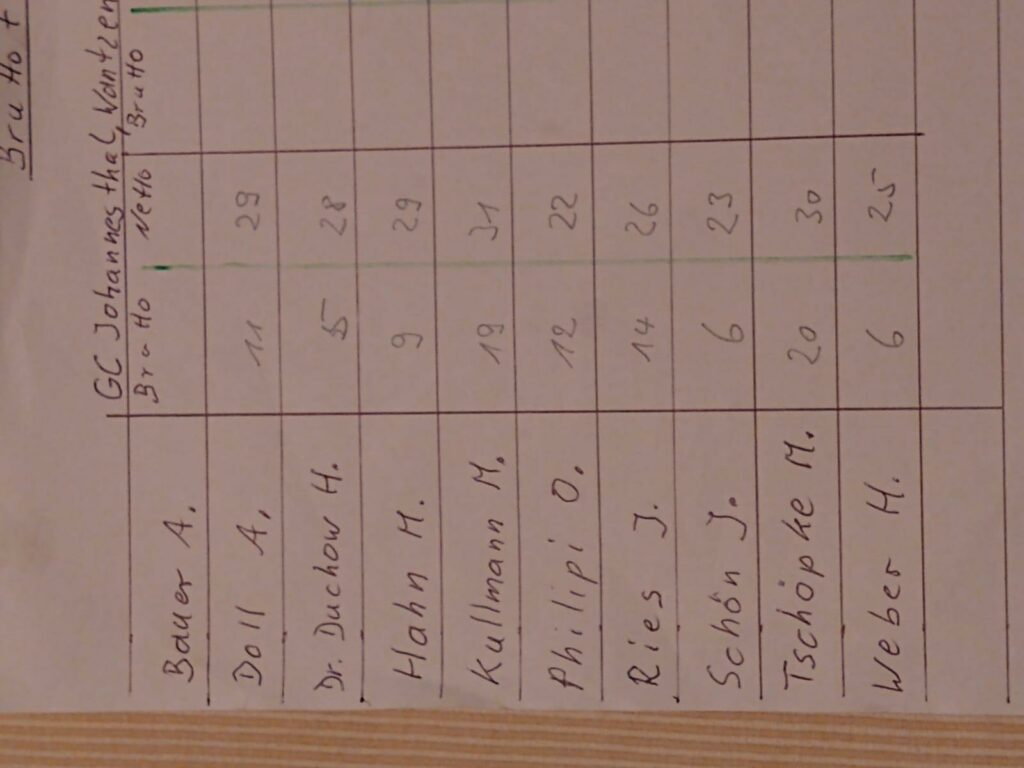 Brutto +
GC Johannesthal, Wantzen
Brutto Netto Brutto
Bauer A.
Doll A. 11 29
Dr. Duchow H. 15 28
Hahn M. 9 29
Kullmann M. 19 31
Philipi O. 12 22
Ries J. 14 26
Schön J. 6 23
Tschöpke M. 20 30
Weber H. 6 25